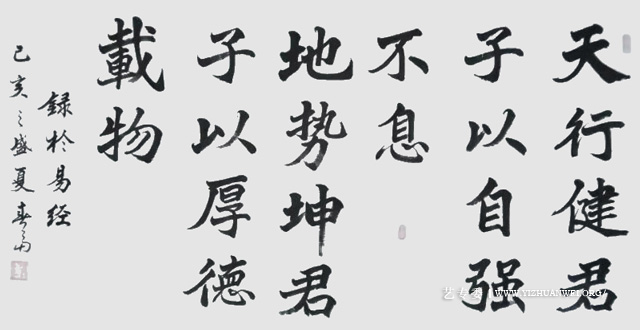 天行健君
子以自强
不息
地势坤君
子以厚德
載物
録於易经
己亥之盛夏春雨
WWW.YIZHUANWEI.ORG/